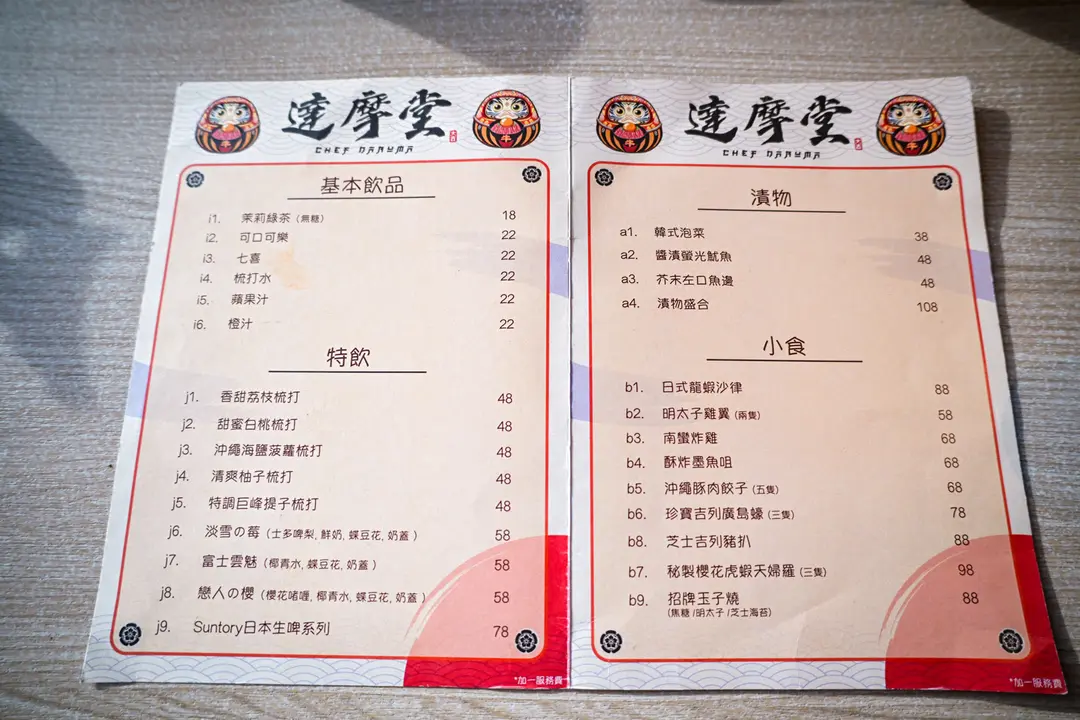 達摩堂
CHEF DARUMA
基本飲品
i1. 茉莉綠茶 (無糖) 18
i2. 可口可樂 22
i3. 七喜 22
i4. 梳打水 22
i5. 蘋果汁 22
i6. 橙汁 22
特飲
j1. 香甜荔枝梳打 48
j2. 甜蜜白桃梳打 48
j3. 沖繩海鹽菠蘿梳打 48
j4. 清爽柚子梳打 48
j5. 特調巨峰提子梳打 48
j6. 淡雪の莓 (士多啤梨, 鮮奶, 蝶豆花, 奶蓋) 58
j7. 富士雲魅 (椰青水, 蝶豆花, 奶蓋) 58
j8. 戀人の櫻 (櫻花啫喱, 椰青水, 蝶豆花, 奶蓋) 58
j9. Suntory日本生啤系列 78
*加一服務費
達摩堂
CHEF DARUMA
漬物
a1. 韓式泡菜 38
a2. 醬漬螢光魷魚 48
a3. 芥末左口魚邊 48
a4. 漬物盛合 108
小食
b1. 日式龍蝦沙律 88
b2. 明太子雞翼 (兩隻) 58
b3. 南蠻炸雞 68
b4. 酥炸墨魚咀 68
b5. 沖繩豚肉餃子 (五隻) 68
b6. 珍寶吉列廣島蠔 (三隻) 78
b8. 芝士吉列豬扒 88
b7. 秘製櫻花虎蝦天婦羅 (三隻) 98
b9. 招牌玉子燒 88
(焦糖/明太子/芝士海苔)
*加一服務費